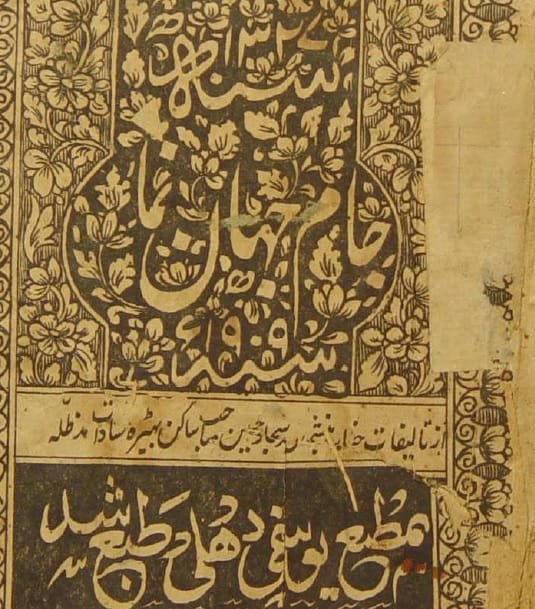 سنه ۱۳۲۷ ھ
جام جہان نما
سنہ ۱۹۰۹ ء
از تالیفات جناب سید سجاد حسین صاحب ساکن بھیڑہ سادات مدظلہ
بمطبع یوسفی دھلی طبع شد